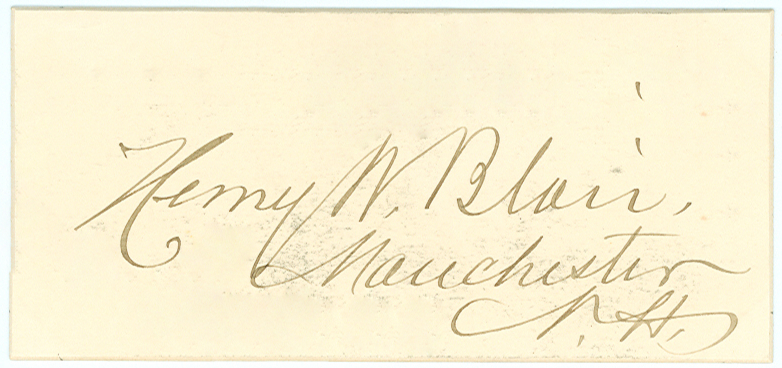 Henry W. Blair,
Manchester
N. H.